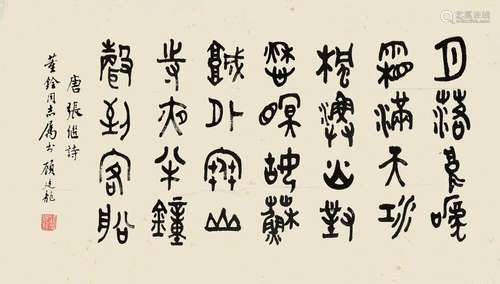 月落烏啼
霜滿天江
楓漁火對
愁眠姑蘇
城外寒山
寺夜半鐘
聲到客船
唐張继詩
同志属书 顧廷龍